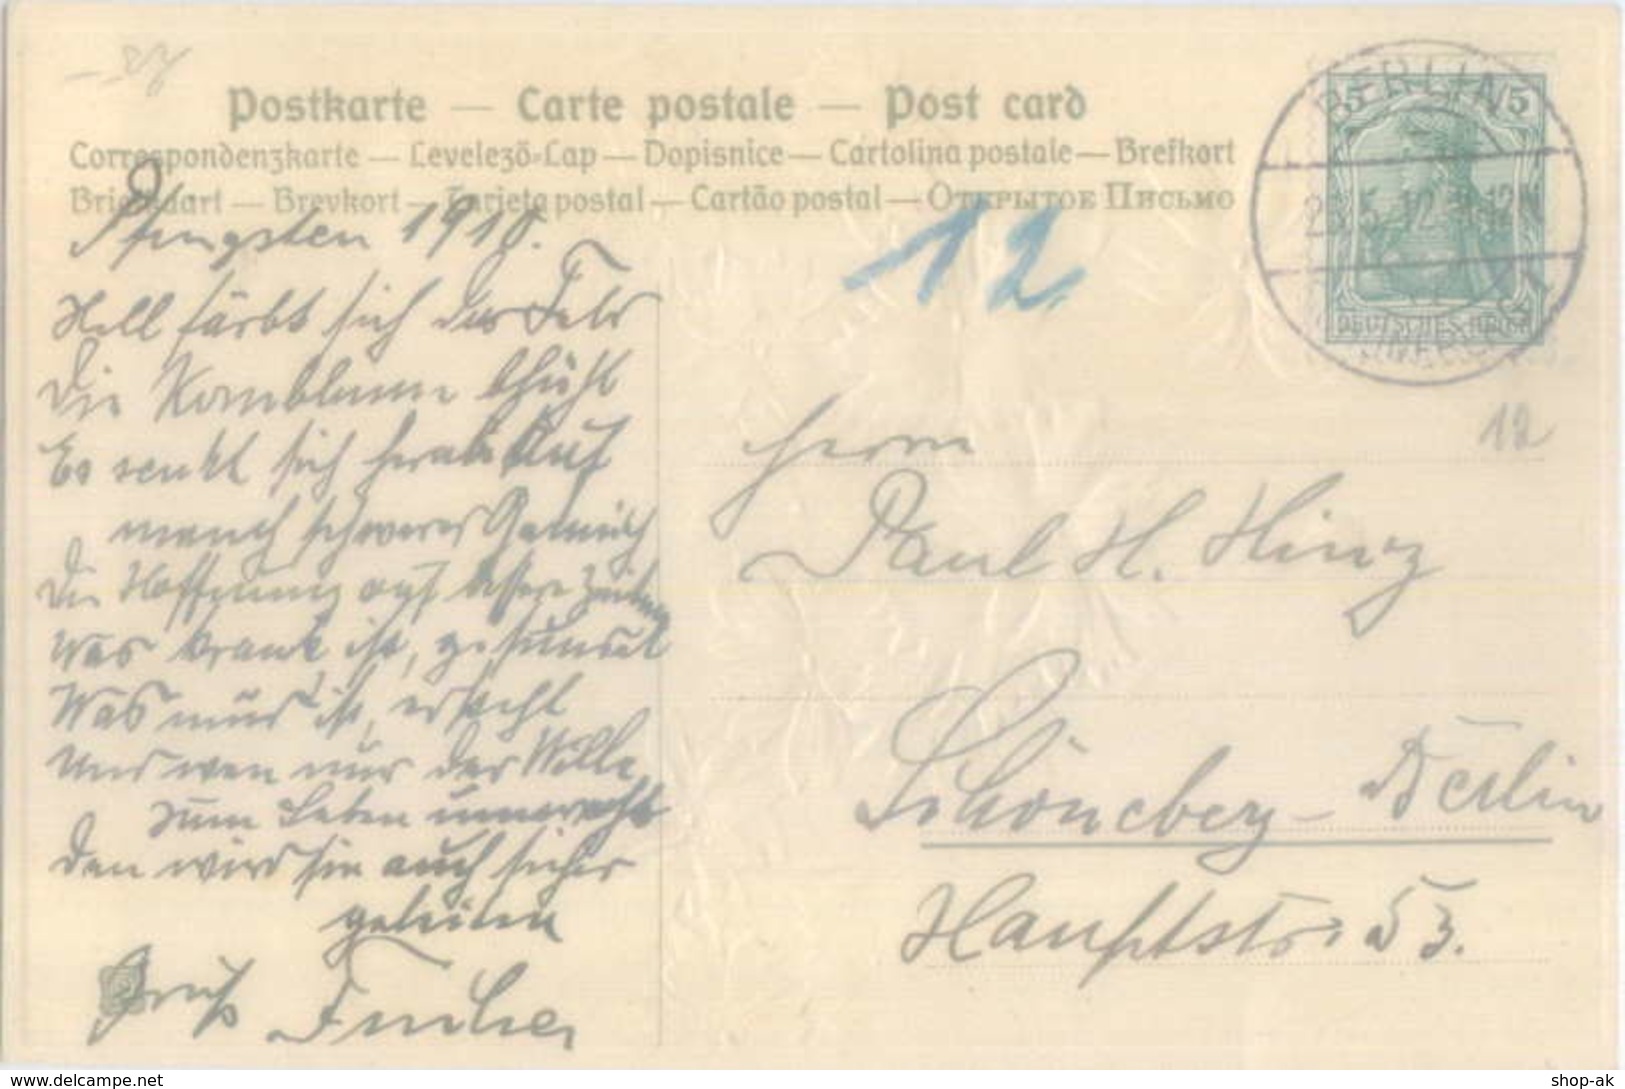 Postkarte — Carte postale — Post card
Correspondenzkarte — Levelező-Lap — Dopisnice — Cartolina postale — Brefkort
Briefkaart — Brevkort — Tarjeta postal — Cartão postal — Открытое Письмо
BERLIN
5 5
DEUTSCHES REICH
12
12
Pfingsten 1910.
Hell färbt sich das Feld
Die Kornblume blüht
Es senkt sich herab auf
manch schweres Gemüth
Die Hoffnung auf bessre Zeiten
Was krank ist, gesundet
Was müd ist, ersteht
Und wen nur der Wille
zum Leben umweht
Den wird sie auch sicher
geleiten
Gruß
Herrn
Paul H. Hinz
Schöneberg-Berlin
Hauptstr. 53.
shop-ak